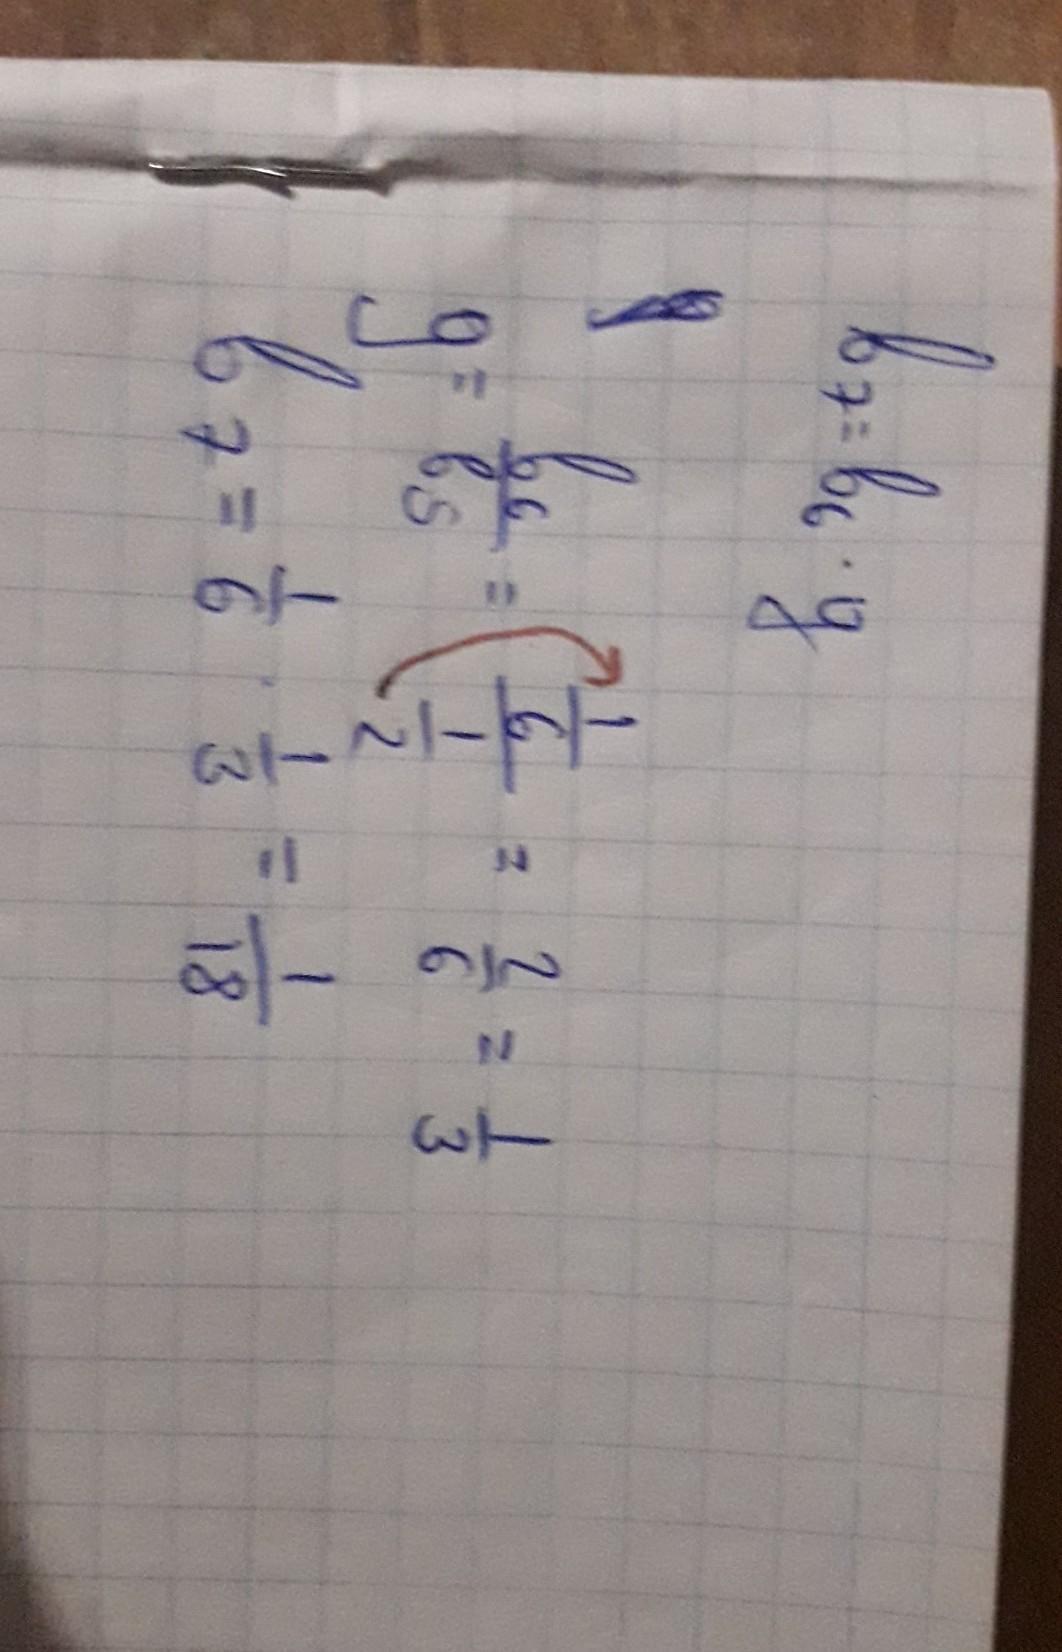 b₇ = b₆ · q
q = b₆/b₅ = (1/6)/(1/2) = 2/6 = 1/3
b₇ = 1/6 · 1/3 = 1/18